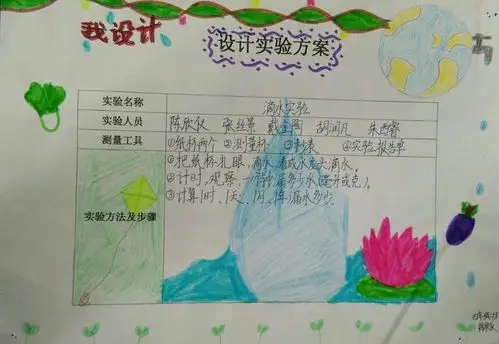 我设计
设计实验方案
实验名称 滴水实验
实验人员 陈欣仪 张丝景 戴金陶 胡润凡 朱雨睿
测量工具 ①纸杯两个 ②测量杯 ③秒表 ④实验报告单
①把纸杯扎眼,滴水,看成水龙头滴水。
②计时,观察,一分钟漏多少水(毫升或克)。
③计算1时、1天、1月、1年漏水多少。
实验方法及步骤